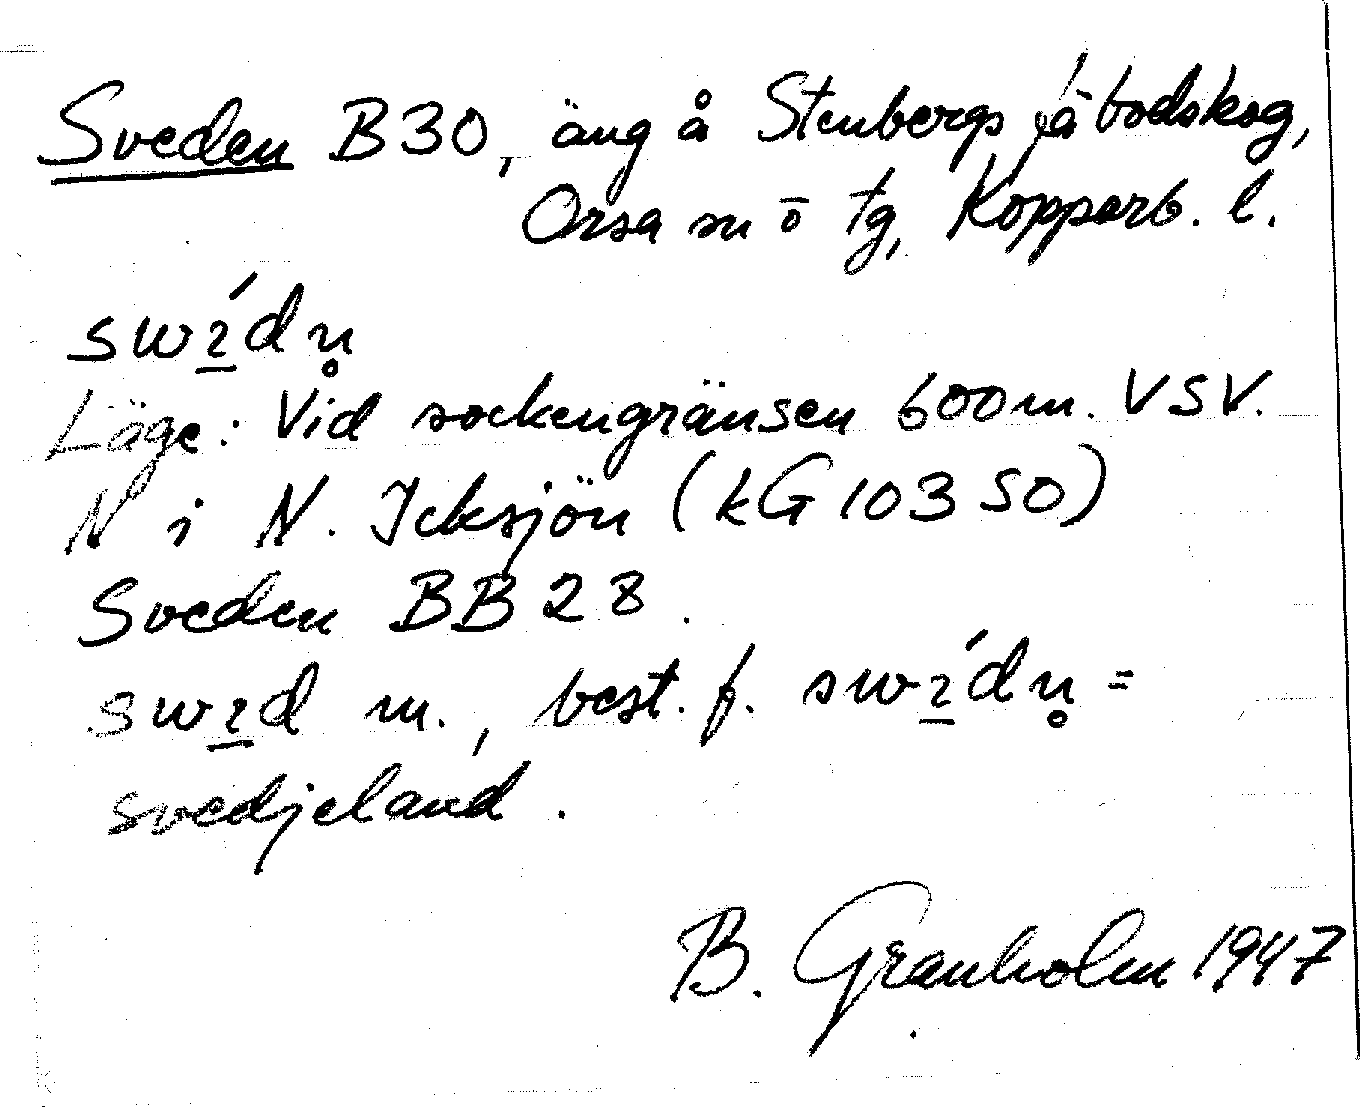 Sveden B30, äng å Stenbergs fäbodskog,
Orsa sn ö tg, Kopparb. l.
swı̲́dn̥
Läge: Vid sockengränsen 600 m. VSV.
N i N. Icksjön (kG 10350)
Sveden BB 28.
swı̲d m., best. f. swı̲́dn̥ =
svedjeland.
B. Granholm 1947